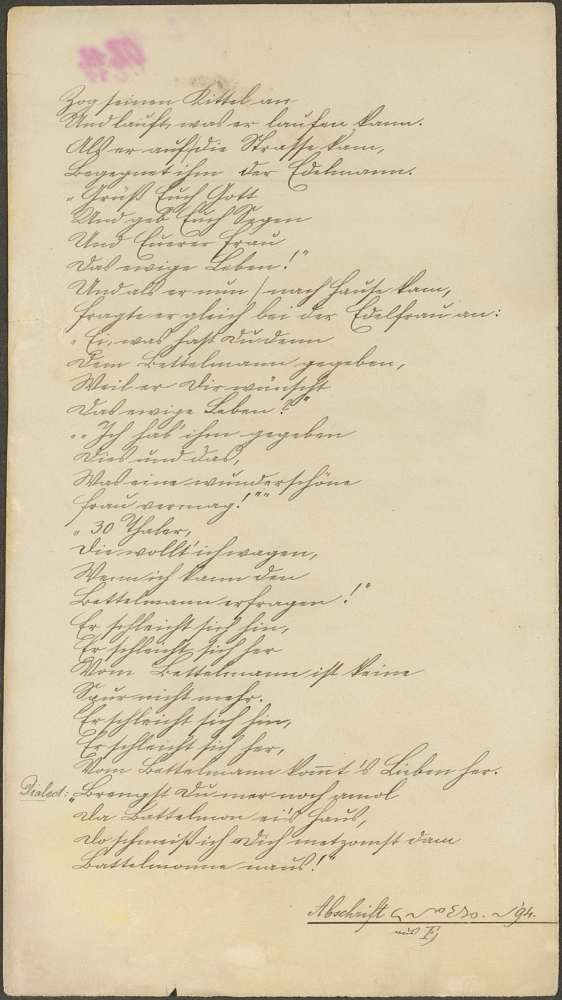 Zog seinen Kittel an
Und lauft, was er laufen kann.
Als er auf die Strasse kam,
Begegnet ihm der Edelmann.
„Grüß Euch Gott
Und geb Euch Segen
Und Eurer Frau
Das ewige Leben!"
Und als er nun nach Hause kam,
Fragte er gleich bei der Edelfrau an:
„Ei, was hast Du denn
Dem Bettelmann gegeben,
Weil er Dir wünscht
Das ewige Leben?"
„„Ich hab ihm gegeben
Dies und das,
Was eine wunderschöne
Frau vermag!""
„30 Thaler,
Die wollt' ich wagen,
Wenn ich kann den
Bettelmann erfragen!"
Er schleicht sich hin,
Er schleicht sich her
Vom Bettelmann ist keine
Spur nicht mehr.
Er schleicht sich hin,
Er schleicht sich her,
Vom Bettelmann kom̅t 's Lieben her.
Dialect: „Brengst Du mer noch amol
Da Battelmon ei's Haus,
Do schmeiß ich Dich metzomst dam
Battelmonne naus!"
Abschrift 94.